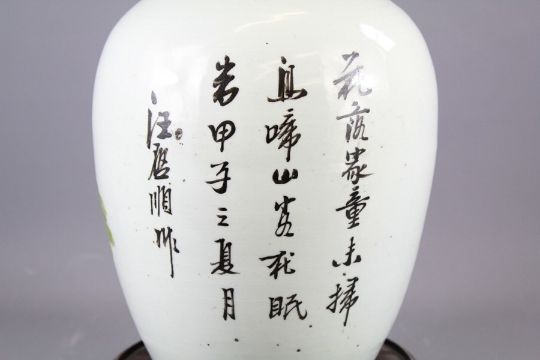 花落家童未掃
鳥啼山客犹眠
岁甲子之夏月
汪啓順作